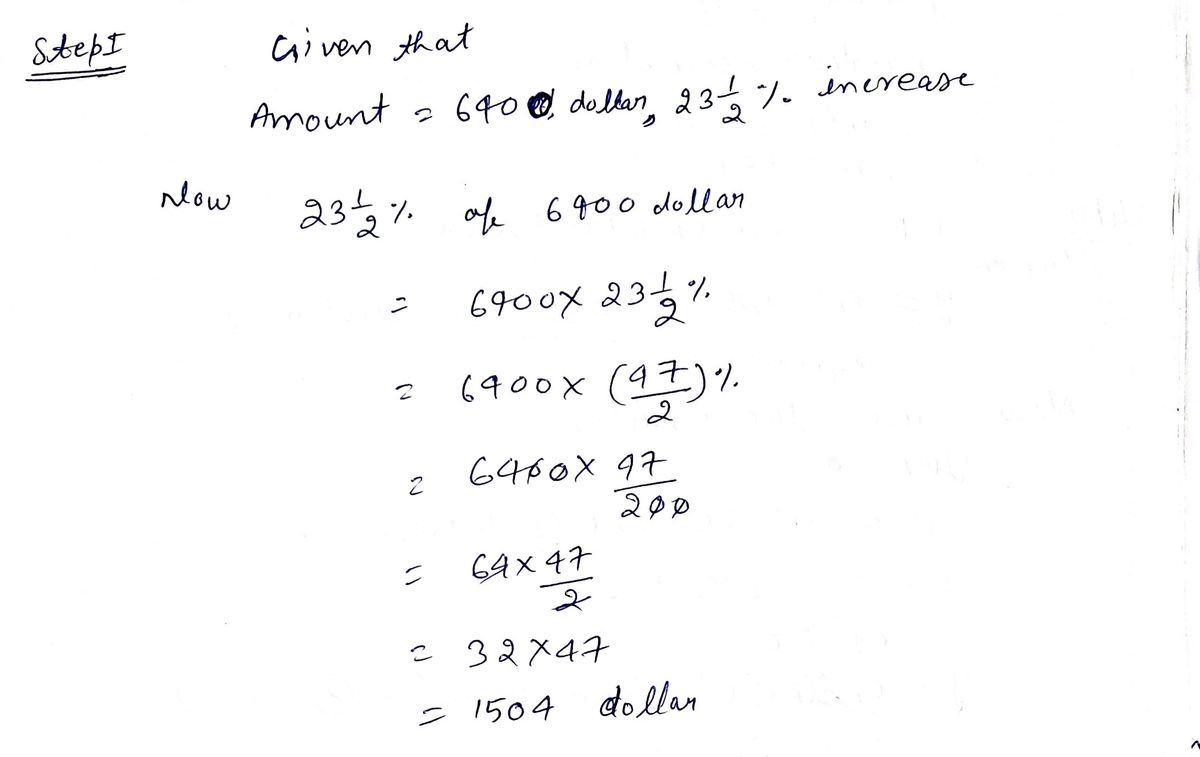 Step I Given that
Amount = 6400 dollar, 23 1/2 % increase
Now 23 1/2 % of 6400 dollar
= 6400 × 23 1/2 %
= 6400 × (47/2) %
= 6400 × 47/200
= 64 × 47/2
= 32 × 47
= 1504 dollar